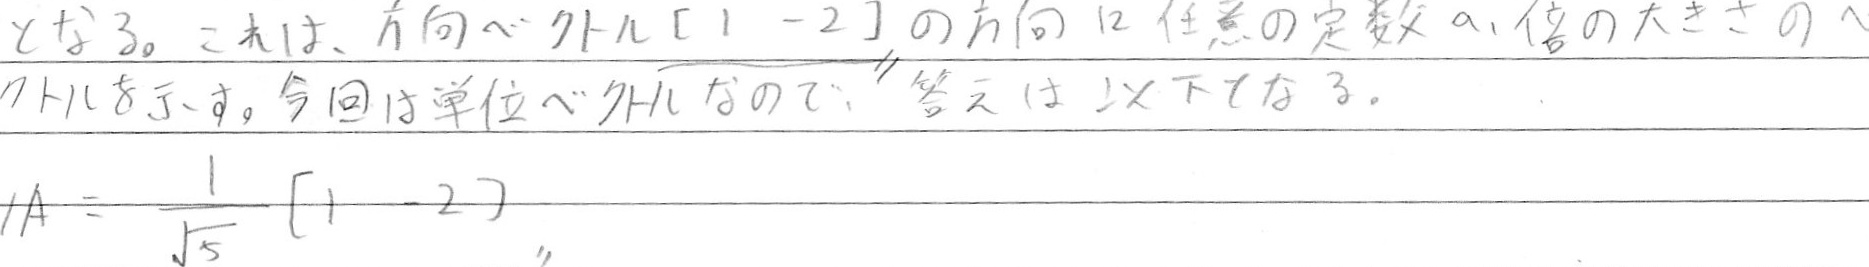 となる。これは、方向ベクトル[1 -2]の方向に任意の定数a₁倍の大きさのベ
クトルを示す。今回は単位ベクトルなので、答えは以下となる。
A = \frac{1}{\sqrt{5}} [1 -2]〃